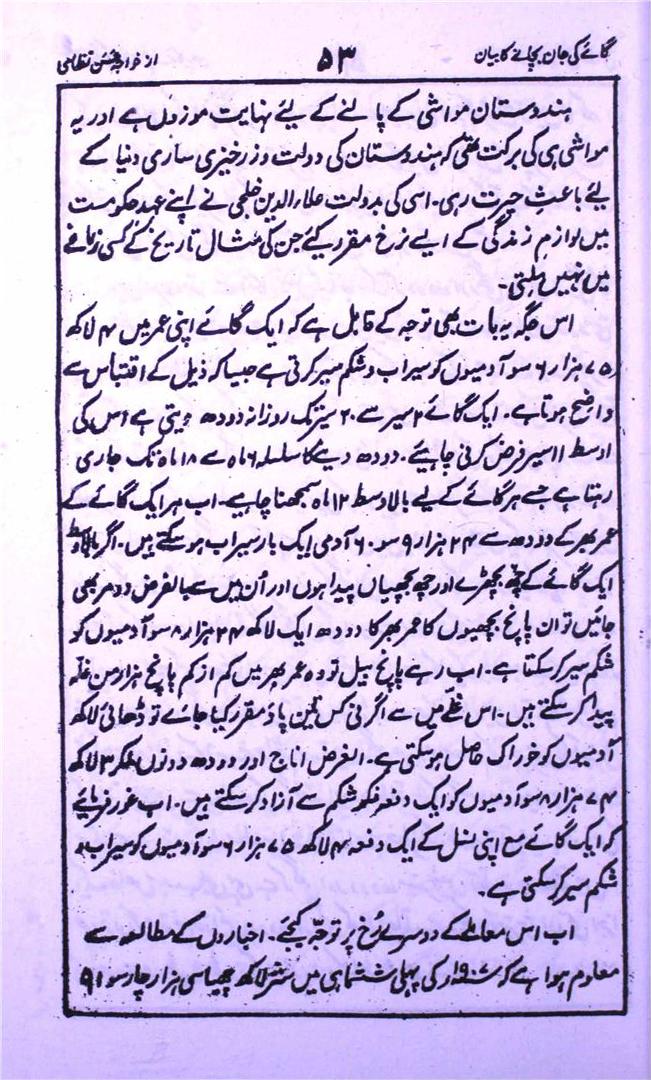 گائے کی جان بچانے کا بیان
۵۳
از خواجہ حسن نظامی
ہندوستان مواشی کے پالنے کے لیئے نہایت موزوں ہے اور یہ
مواشی ہی کی برکت تھی کہ ہندوستان کی دولت و زرخیزی ساری دنیا کے
لیئے باعثِ حیرت رہی۔ اسی کی بدولت علاءالدین خلجی نے اپنے عہد حکومت
میں لوازم زندگی کے ایسے نرخ مقرر کیئے جن کی مثال تاریخ کے کسی زمانے
میں نہیں ملتی۔
اس جگہ یہ بات بھی توجہ کے قابل ہے کہ ایک گائے اپنی عمر میں ۴ لاکھ
۷۵ ہزار ۶ سو آدمیوں کو سیراب و شکم سیر کرتی ہے جیسا کہ ذیل کے اقتباس سے
واضح ہوتا ہے۔ ایک گائے ۲ سیر سے ۲۰ سیر تک روزانہ دودھ دیتی ہے اس کی
اوسط ۱۱ سیر فرض کرنی چاہیئے۔ دودھ دینے کا سلسلہ ۶ ماہ سے ۱۸ ماہ تک جاری
رہتا ہے جسے ہر گائے کے لیے بالاوسط ۱۲ ماہ سمجھنا چاہیے۔ اب ہر ایک گائے کے
عمر بھر کے دودھ سے ۲۴ ہزار ۹ سو ۶۰ آدمی ایک بار سیراب ہو سکتے ہیں۔ اگر بالاوسط
ایک گائے کے چھ بچھڑے اور چھ بچھیاں پیدا ہوں اور اُن میں سے بالفرض دو مر بھی
جائیں تو ان پانچ بچھیوں کا عمر بھر کا دودھ ایک لاکھ ۲۴ ہزار ۸ سو آدمیوں کو
شکم سیر کر سکتا ہے۔ اب رہے پانچ بیل تو وہ عمر بھر میں کم از کم پانچ ہزار من غلہ
پیدا کر سکتے ہیں۔ اس غلّے میں سے اگر فی کس تین پاؤ مقرر کیا جائے تو ڈھائی لاکھ
آدمیوں کو خوراک حاصل ہو سکتی ہے۔ الغرض اناج اور دودھ دونوں ملکر ۳ لاکھ
۷۴ ہزار ۸ سو آدمیوں کو ایک دفعہ فکر شکم سے آزاد کر سکتے ہیں۔ اب غور فرمائیے
کہ ایک گائے مع اپنی نسل کے ایک دفعہ ۴ لاکھ ۷۵ ہزار ۶ سو آدمیوں کو سیراب و
شکم سیر کر سکتی ہے۔
اب اس معاملے کے دوسرے رُخ پر توجہ کیجئے۔ اخباروں کے مطالعہ سے
معلوم ہوا ہے کہ ۱۹۰۷ء کی پہلی ششماہی میں ستر لاکھ چھیاسی ہزار چار سو ۹۱